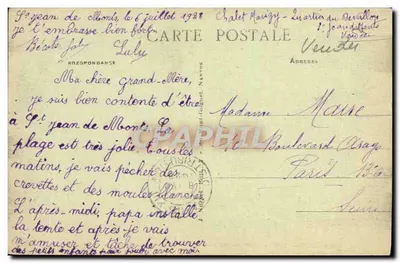 St jean de Monts le 6 juillet 1928
Je t'embrasse bien fort
Lulu
Chalet Marizy - Quartier du
St Jean de Monts
Vendée
CARTE POSTALE
CORRESPONDANCE
ADRESSE
Ma chère Grand-Mère,
je suis bien contente d'être
à St jean de Monts. La
plage est très jolie. Tous les
matins, je vais pêcher des
crevettes et des moules blanches
L'après-midi, papa installe
la tente et après je vais
m'amuser et tâche de trouver
des petits enfants pour jouer avec moi
Madame Maire
Boulevard Arago
Paris
Seine